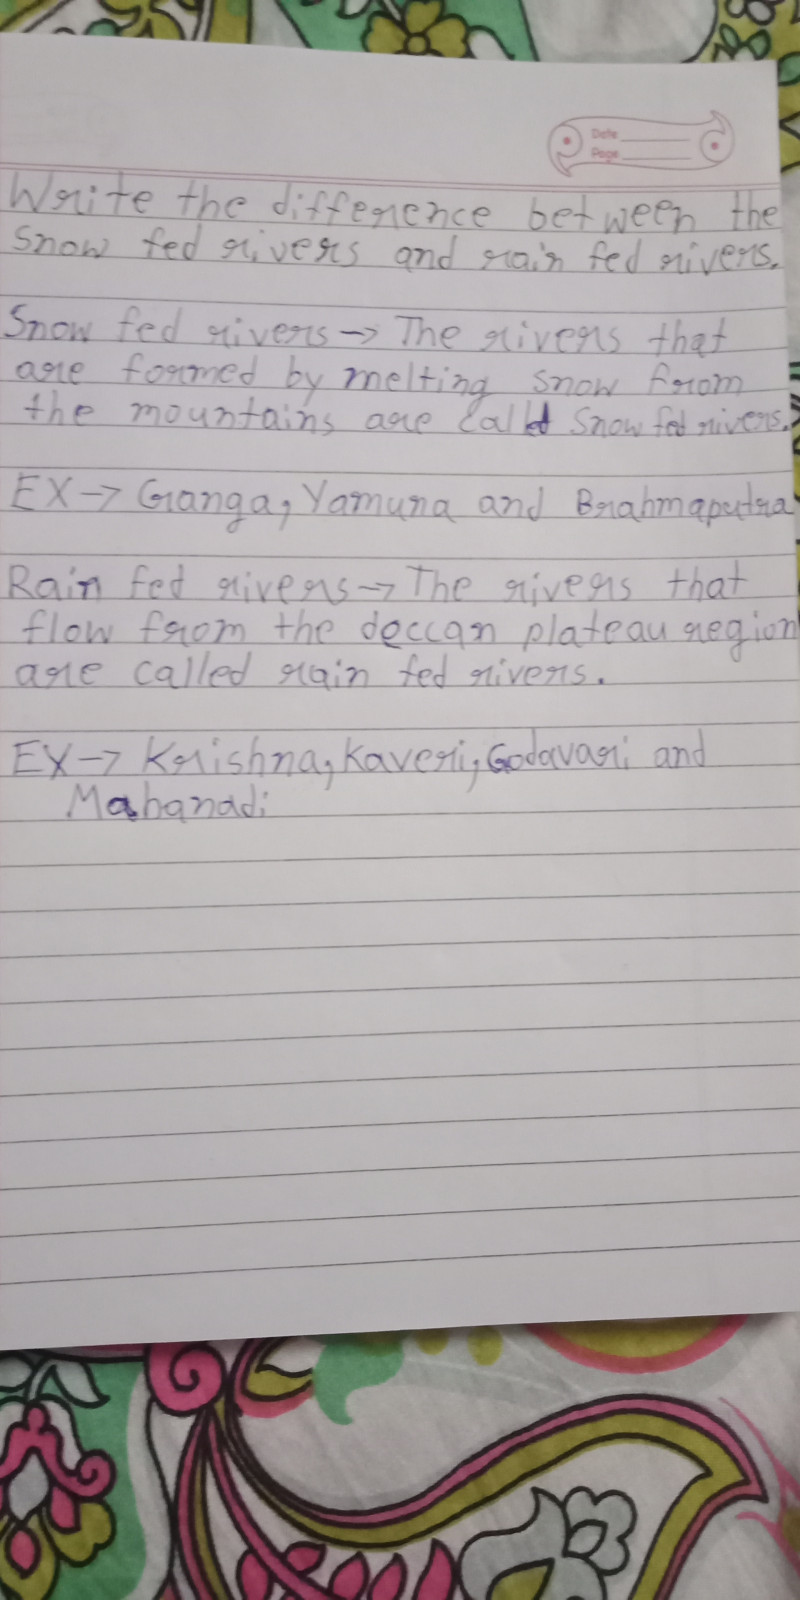 Date
Page
Write the difference between the
Snow fed rivers and rain fed rivers.
Snow fed rivers → The rivers that
are formed by melting snow from
the mountains are called Snow fed rivers.
EX → Ganga, Yamuna and Brahmaputra
Rain fed rivers → The rivers that
flow from the deccan plateau region
are called rain fed rivers.
EX → Krishna, Kaveri, Godavari and
Mahanadi